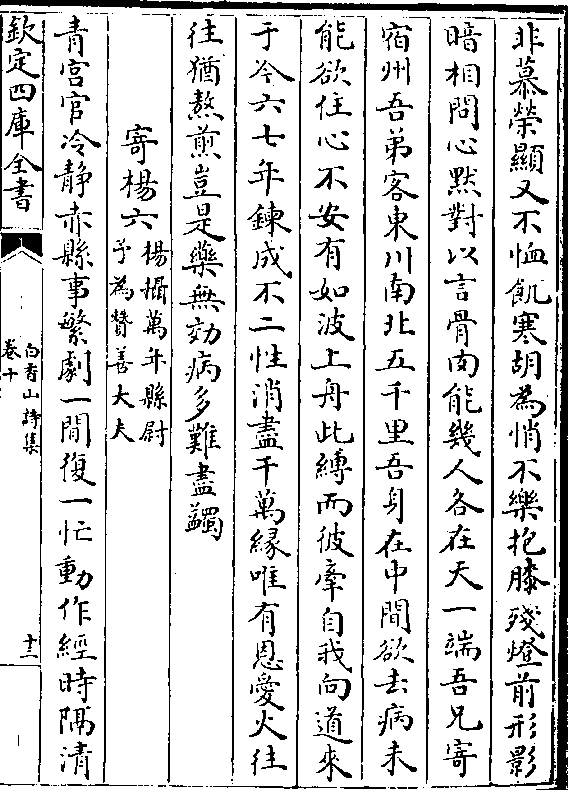 非慕榮顯又不恤飢寒胡為悄不樂抱膝殘燈前形影
暗相問心黙對以言骨肉能幾人各在天一端吾兄寄
宿州吾弟客東川南北五千里吾身在中間欲去病未
能欲住心不安有如波上舟此縛而彼牽自我向道來
于今六七年鍊成不二性消盡千萬緣唯有恩愛火往
往猶熬煎豈是藥無効病多難盡蠲
寄楊六
楊攝萬年縣尉
予為贊善大夫
青宮官冷靜赤縣事繁劇一閒復一忙動作經時隔清
欽定四庫全書
白香山詩集
卷十
十二